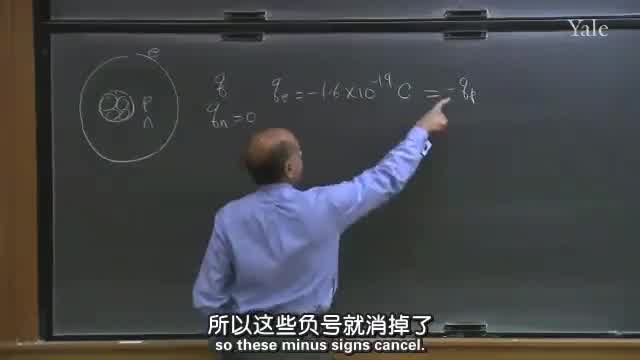 Yale
e
p
n
q
q_e = -1.6 × 10^-19 C = -q_p
q_n = 0
所以这些负号就消掉了
so these minus signs cancel.